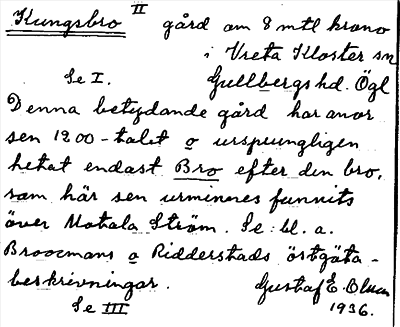 Kungsbro II gård om 8 mtl krono
i Vreta Kloster sn
Se I. Gullbergs hd. Ögl
Denna betydande gård har anor
sen 1200-talet o ursprungligen
hetat endast Bro efter den bro,
som här sen urminnes funnits
över Motala Ström. Se bl. a.
Broocmans o Ridderstads östgöta-
beskrivningar. Gustaf E. Olsson
Se III 1936.